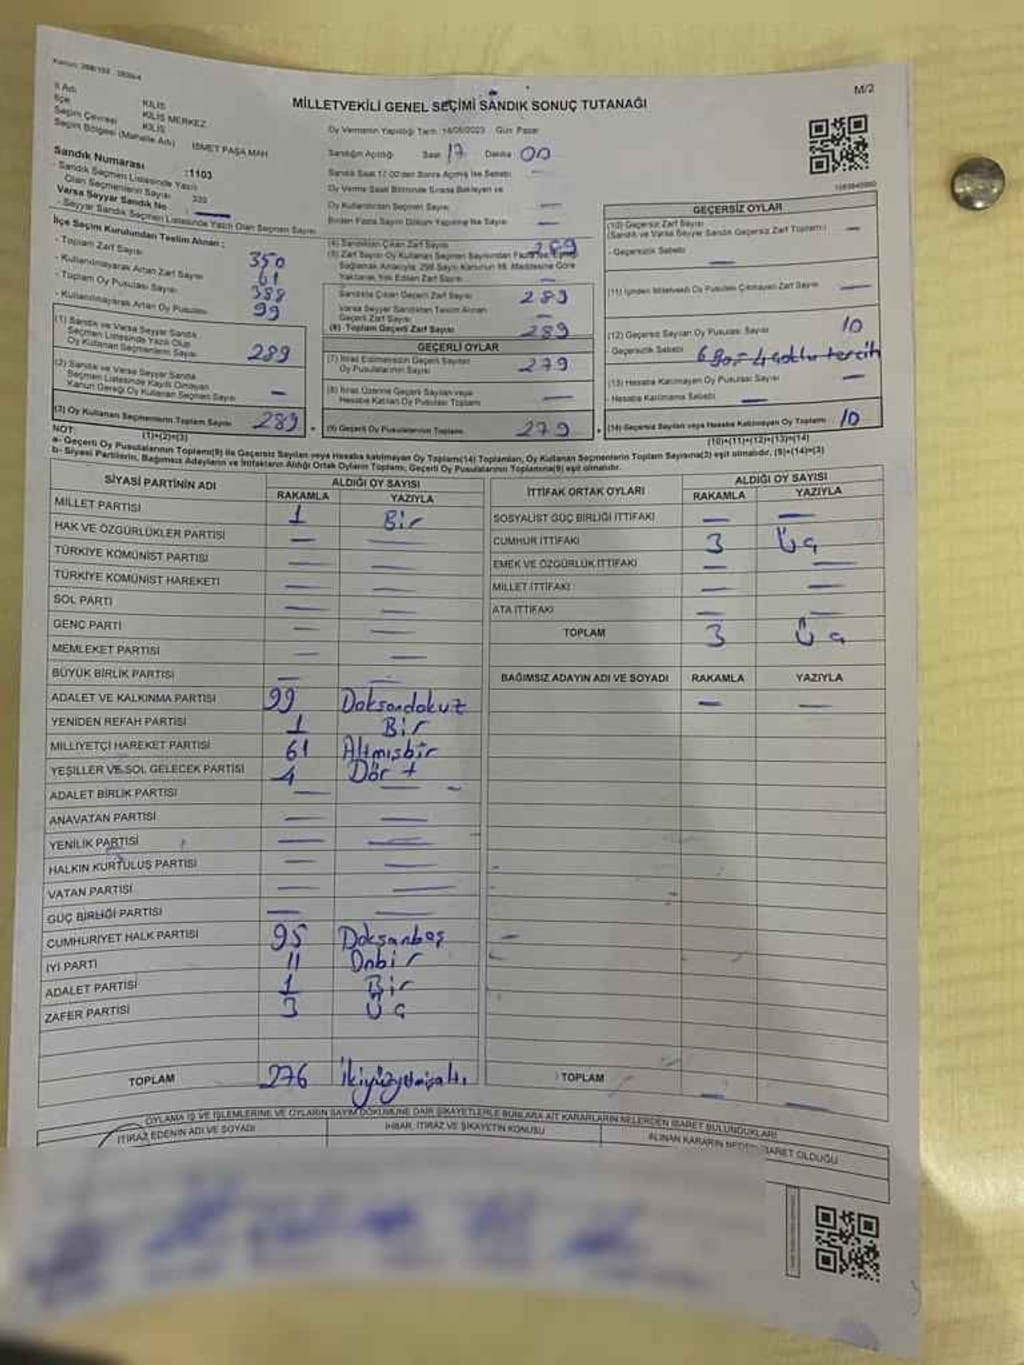 M/2
MİLLETVEKİLİ GENEL SEÇİMİ SANDIK SONUÇ TUTANAĞI
İl Adı KİLİS
İlçe KİLİS MERKEZ
Seçim Çevresi KİLİS
Seçim Bölgesi (Mahalle Adı) İSMET PAŞA MAH
Sandık Numarası :1103
- Sandık Seçmen Listesinde Yazılı
Olan Seçmenlerin Sayısı
Varsa Seyyar Sandık No
- Seyyar Sandık Seçmen Listesinde Yazılı Olan Seçmen Sayısı
İlçe Seçim Kurulundan Teslim Alınan :
- Toplam Zarf Sayısı 350
- Kullanılmayarak Artan Zarf Sayısı 61
- Toplam Oy Pusulası Sayısı 388
- Kullanılmayarak Artan Oy Pusulası 99
(1) Sandık ve Varsa Seyyar Sandık
Seçmen Listesinde Yazılı Olup
Oy Kullanan Seçmenlerin Sayısı 289
(2) Sandık ve Varsa Seyyar Sandık
Seçmen Listesinde Kayıtlı Olmayan
Kanun Gereği Oy Kullanan Seçmen Sayısı —
(3) Oy Kullanan Seçmenlerin Toplam Sayısı 289
(1)+(2)=(3)
Oy Vermenin Yapıldığı Tarih: 14/05/2023 Gün: Pazar
Sandığın Açıldığı Saat 17 Dakika 00
Sandık Saat 17.00'den Sonra Açılmış İse Sebebi —
Oy Verme Saati Bitiminde Sırada Bekleyen ve
Oy Kullandırılan Seçmen Sayısı —
Birden Fazla Sayım Döküm Yapılmış İse Sayısı —
(4) Sandıktan Çıkan Zarf Sayısı 289
Sandıkta Çıkan Geçerli Zarf Sayısı 289
Varsa Seyyar Sandıktan Teslim Alınan
Geçerli Zarf Sayısı —
(6) Toplam Geçerli Zarf Sayısı 289
GEÇERLİ OYLAR
(7) İtiraz Edilmeksizin Geçerli Sayılan
Oy Pusulalarının Sayısı 279
(8) İtiraz Üzerine Geçerli Sayılan veya
Hesaba Katılan Oy Pusulası Toplamı —
(9) Geçerli Oy Pusulalarının Toplamı 279
GEÇERSİZ OYLAR
(10) Geçersiz Zarf Sayısı
(Sandık ve Varsa Seyyar Sandık Geçersiz Zarf Toplamı) —
- Geçersizlik Sebebi —
(11) İçinden Milletvekili Oy Pusulası Çıkmayan Zarf Sayısı —
(12) Geçersiz Sayılan Oy Pusulası Sayısı 10
- Geçersizlik Sebebi
(13) Hesaba Katılmayan Oy Pusulası Sayısı —
- Hesaba Katılmama Sebebi —
(14) Geçersiz Sayılan veya Hesaba Katılmayan Oy Toplamı 10
(10)+(11)+(12)+(13)=(14)
NOT:
a- Geçerli Oy Pusulalarının Toplamı(9) ile Geçersiz Sayılan veya hesaba katılmayan Oy Toplamı(14) Toplamları, Oy Kullanan Seçmenlerin Toplam Sayısına(3) eşit olmalıdır. (9)+(14)=(3)
b- Siyasi Partilerin, Bağımsız Adayların ve İttifakların Aldığı Ortak Oyların Toplamı, Geçerli Oy Pusulalarının Toplamına(9) eşit olmalıdır.
SİYASİ PARTİNİN ADI ALDIĞI OY SAYISI
RAKAMLA YAZIYLA
MİLLET PARTİSİ 1 Bir
HAK VE ÖZGÜRLÜKLER PARTİSİ — —
TÜRKİYE KOMÜNİST PARTİSİ — —
TÜRKİYE KOMÜNİST HAREKETİ — —
SOL PARTİ — —
GENÇ PARTİ — —
MEMLEKET PARTİSİ — —
BÜYÜK BİRLİK PARTİSİ — —
ADALET VE KALKINMA PARTİSİ 99 Doksandokuz
YENİDEN REFAH PARTİSİ 1 Bir
MİLLİYETÇİ HAREKET PARTİSİ 61 Altmışbir
YEŞİLLER VE SOL GELECEK PARTİSİ 4 Dört
ADALET BİRLİK PARTİSİ — —
ANAVATAN PARTİSİ — —
YENİLİK PARTİSİ — —
HALKIN KURTULUŞ PARTİSİ — —
VATAN PARTİSİ — —
GÜÇ BİRLİĞİ PARTİSİ — —
CUMHURİYET HALK PARTİSİ 95 Doksanbeş
İYİ PARTİ 11 Onbir
ADALET PARTİSİ 1 Bir
ZAFER PARTİSİ 3 Üç
TOPLAM 276 İkiyüzyetmişaltı
İTTİFAK ORTAK OYLARI ALDIĞI OY SAYISI
RAKAMLA YAZIYLA
SOSYALİST GÜÇ BİRLİĞİ İTTİFAKI — —
CUMHUR İTTİFAKI 3 Üç
EMEK VE ÖZGÜRLÜK İTTİFAKI — —
MİLLET İTTİFAKI — —
ATA İTTİFAKI — —
TOPLAM 3 Üç
BAĞIMSIZ ADAYIN ADI VE SOYADI RAKAMLA YAZIYLA
— —
TOPLAM — —
OYLAMA İŞ VE İŞLEMLERİNE VE OYLARIN SAYIM DÖKÜMÜNE DAİR ŞİKAYETLERLE BUNLARA AİT KARARLARIN NELERDEN İBARET BULUNDUKLARI
İTİRAZ EDENİN ADI VE SOYADI İHBAR, İTİRAZ VE ŞİKAYETİN KONUSU